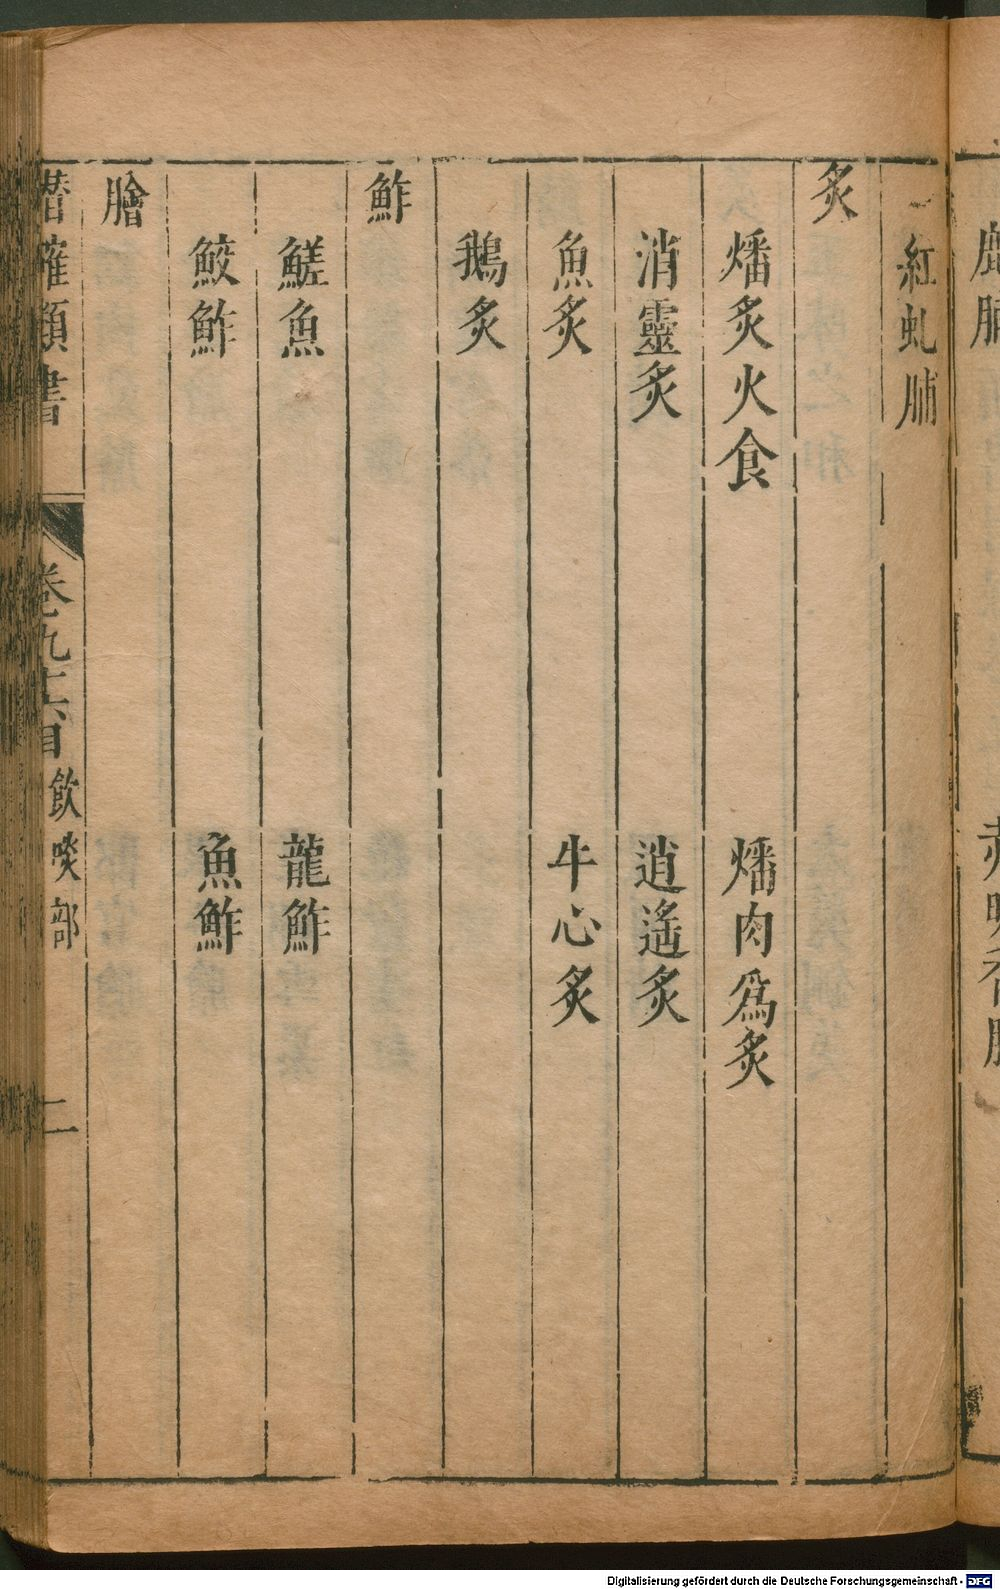 紅虬脯
炙
燔炙火食　燔肉爲炙
消靈炙　逍遙炙
魚炙　牛心炙
鵝炙
鮓
鱃魚　龍鮓
鮫鮓　魚鮓
膾
潛確類書　卷九十六目　飲啖部　二
Digitalisierung gefördert durch die Deutsche Forschungsgemeinschaft - DFG